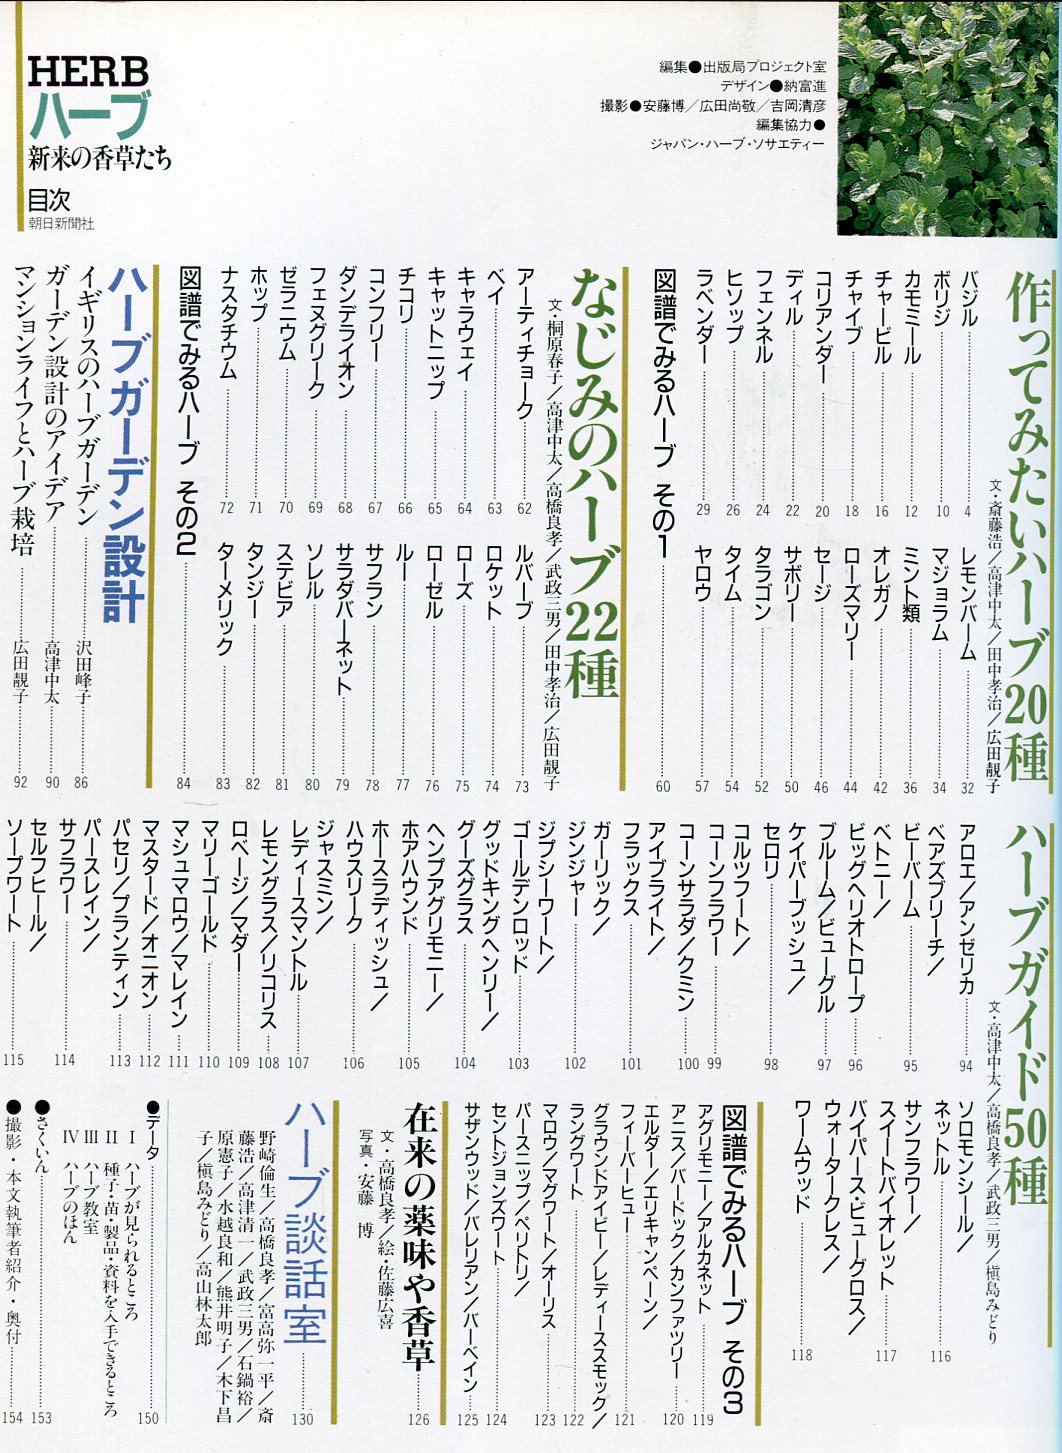 HERB
ハーブ
新来の香草たち
目次
朝日新聞社
編集●出版局プロジェクト室
デザイン●納富進
撮影●安藤博／広田尚敬／吉岡清彦
編集協力●
ジャパン・ハーブ・ソサエティー
作ってみたいハーブ20種
文・斎藤浩／高津中太／田中孝治／広田靚子
バジル 4
ボリジ 10
カモミール 12
チャービル 16
チャイブ 18
コリアンダー 20
ディル 22
フェンネル 24
ヒソップ 26
ラベンダー 29
レモンバーム 32
マジョラム 34
ミント類 36
オレガノ 42
ローズマリー 44
セージ 46
サボリー 50
タラゴン 52
タイム 54
ヤロウ 57
図譜でみるハーブ その1 60
なじみのハーブ22種
文・桐原春子／高津中太／高橋良孝／武政三男／田中孝治／広田靚子
アーティチョーク 62
ベイ 63
キャラウェイ 64
キャットニップ 65
チコリ 66
コンフリー 67
ダンデライオン 68
フェヌグリーク 69
ゼラニウム 70
ホップ 71
ナスタチウム 72
ルバーブ 73
ロケット 74
ローズ 75
ローゼル 76
ルー 77
サフラン 78
サラダバーネット 79
ソレル 80
ステビア 81
タンジー 82
ターメリック 83
図譜でみるハーブ その2 84
ハーブガーデン設計
イギリスのハーブガーデン 沢田峰子 86
ガーデン設計のアイデア 高津中太 90
マンションライフとハーブ栽培 広田靚子 92
ハーブガイド50種
文・高津中太／高橋良孝／武政三男／槇島みどり
アロエ／アンゼリカ 94
ベアズブリーチ／
ビーバーム 95
ベトニー／
ビッグヘリオトロープ 96
ブルーム／ビューグル 97
ケイパーブッシュ／
セロリ 98
コルツフート／
コーンフラワー 99
コーンサラダ／クミン 100
アイブライト／
フラックス 101
ガーリック／
ジンジャー 102
ジプシーワート／
ゴールデンロッド 103
グッドキングヘンリー／
グーズグラス 104
ヘンプアグリモニー／
ホアハウンド 105
ホースラディッシュ／
ハウスリーク 106
ジャスミン／
レディースマントル 107
レモングラス／リコリス 108
ロベージ／マダー 109
マリーゴールド 110
マシュマロウ／マレイン 111
マスタード／オニオン 112
パセリ／プランティン 113
パースレイン／
サフラワー 114
セルフヒール／
ソープワート 115
ソロモンシール／
ネットル 116
サンフラワー／
スイートバイオレット 117
バイパース・ビューグロス／
ウォータークレス／
ワームウッド 118
図譜でみるハーブ その3
アグリモニー／アルカネット 119
アニス／バードック／カンファツリー 120
エルダー／エリキャンペーン／
フィーバーヒュー 121
グラウンドアイビー／レディーススモック／
ラングワート 122
マロウ／マグワート／オーリス 123
パースニップ／ペリトリ／
セントジョンズワート 124
サザンウッド／バレリアン／バーベイン 125
在来の薬味や香草 126
文・高橋良孝／絵・佐藤広喜
写真・安藤 博
ハーブ談話室 130
野崎倫生／高橋良孝／富高弥一平／斎
藤浩／高津清一／武政三男／石鍋裕／
原憲子／水越良和／熊井明子／木下昌
子／槇島みどり／高山林太郎
●データ 150
Ⅰ ハーブが見られるところ
Ⅱ 種子・苗・製品・資料を入手できるところ
Ⅲ ハーブ教室
Ⅳ ハーブのほん
●さくいん 153
●撮影・本文執筆者紹介・奥付 154